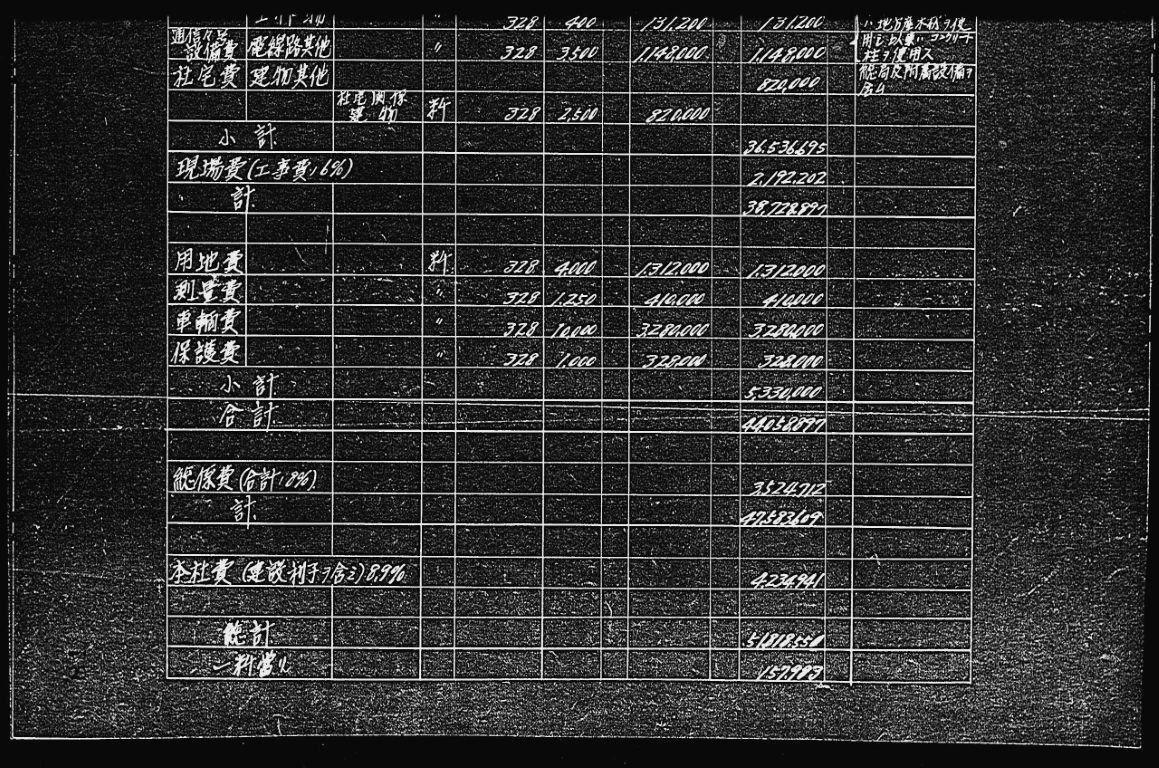 〃 328 400 131,200 131,200
通信線 設備費 電線路其他 〃 328 3,500 1,148,000 1,148,000 用シ 柱ヲ使用ス
社宅費 建物其他 820,000 総局及附属設備ヲ含ム
社宅関係建物 粁 328 2,500 820,000
小計 36,536,695
現場費(工事費ノ6%) 2,192,202
計 38,728,897
用地費 粁 328 4,000 1,312,000 1,312,000
測量費 〃 328 1,250 410,000 410,000
車輌費 〃 328 10,000 3,280,000 3,280,000
保護費 〃 328 1,000 328,000 328,000
小計 5,330,000
合計 44,058,897
総係費(合計ノ8%) 3,524,712
計 47,583,609
本社費(建設利子ヲ含ミ)8.9% 4,234,941
総計 51,818,550
一粁当リ 157,983